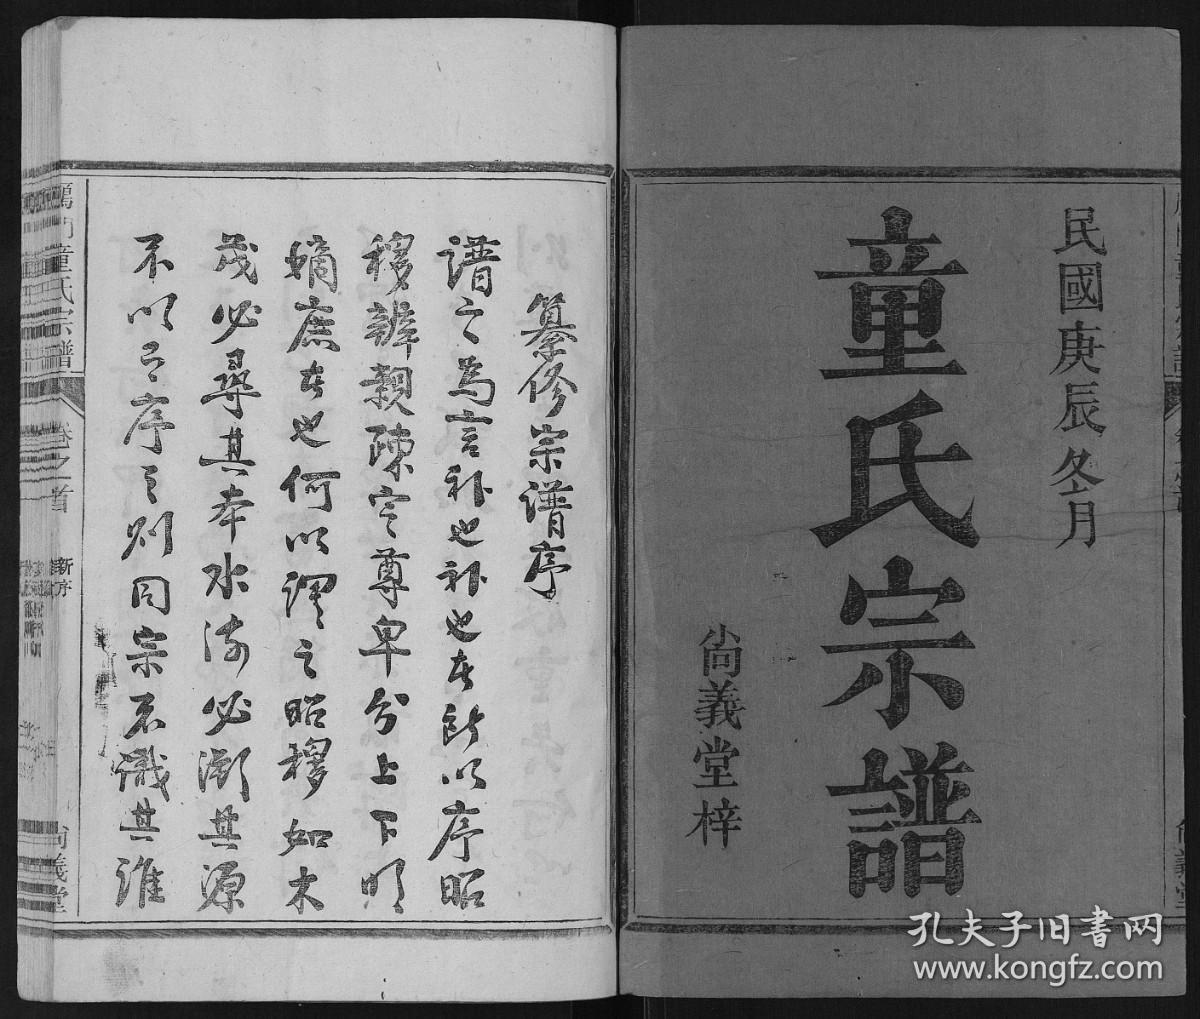 民國庚辰冬月
童氏宗譜
尚義堂梓
纂修宗譜序
譜之為言補也補也者所以序昭
穆辨親疎定尊卑分上下明
嫡庶者也何以謂之昭穆如木
茂必尋其本水流必溯其源
不以之序之则同宗不識其誰
童氏宗譜
卷之首
新序
尚義堂
孔夫子旧书网
www.kongfz.com